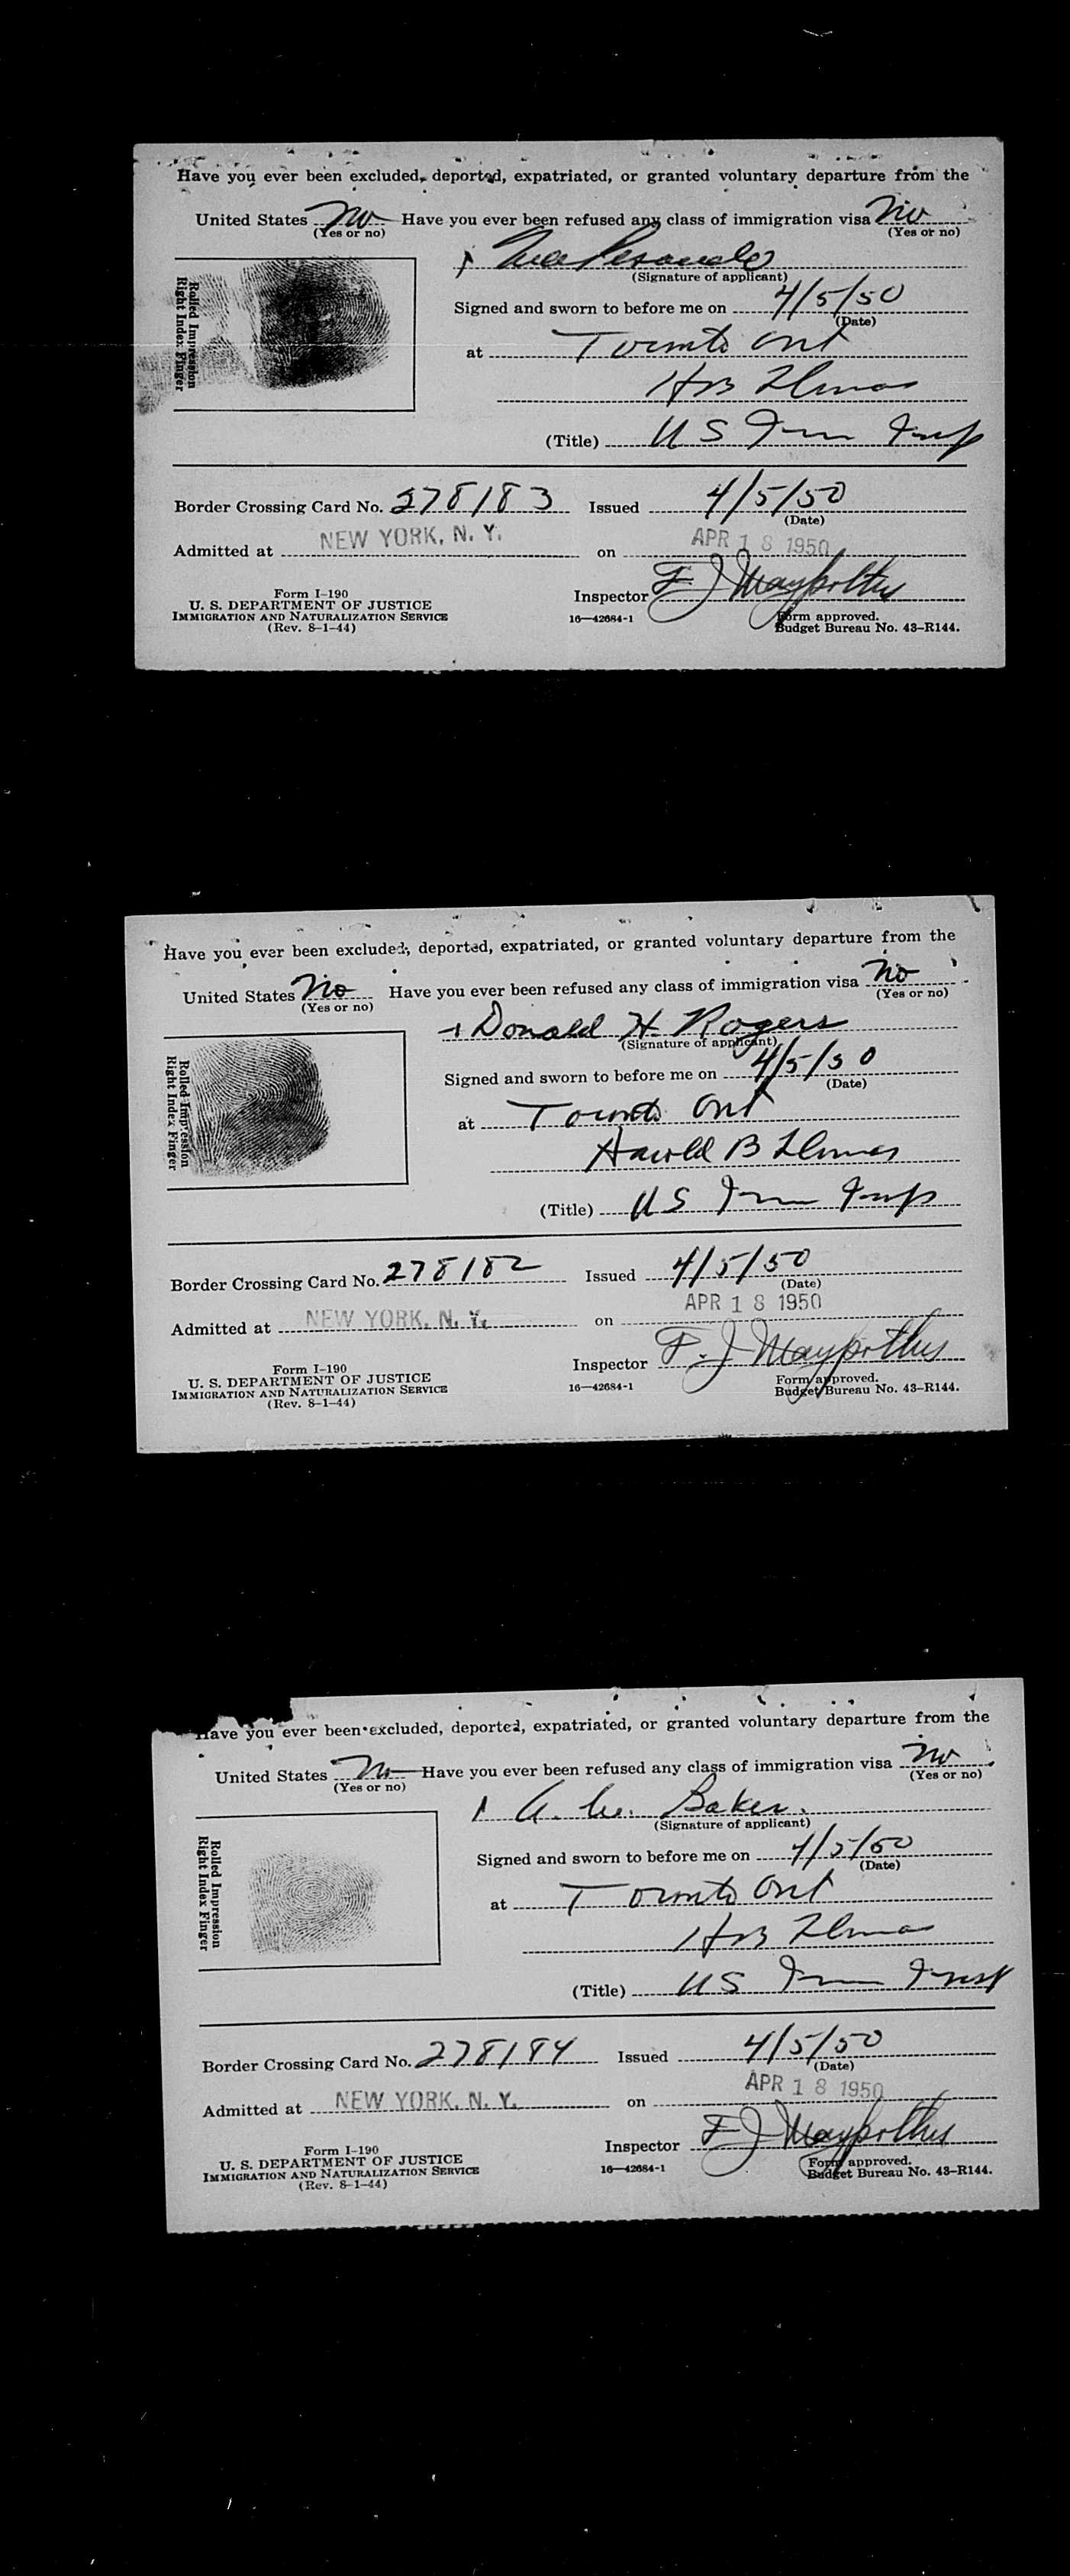 Have you ever been excluded, deported, expatriated, or granted voluntary departure from the
United States No Have you ever been refused any class of immigration visa No
(Yes or no) (Yes or no)
(Signature of applicant)
Rolled Impression
Right Index Finger
Signed and sworn to before me on 4/5/50
(Date)
at Toronto Ont
HB
(Title) US Imm Insp
Border Crossing Card No. 278183 Issued 4/5/50
(Date)
Admitted at NEW YORK, N. Y. on APR 18 1950
Inspector F J
Form I-190
U. S. DEPARTMENT OF JUSTICE
IMMIGRATION AND NATURALIZATION SERVICE
(Rev. 8-1-44)
16—42684-1
Form approved.
Budget Bureau No. 43-R144.
Have you ever been excluded, deported, expatriated, or granted voluntary departure from the
United States No Have you ever been refused any class of immigration visa No
(Yes or no) (Yes or no)
Donald H. Rogers
(Signature of applicant)
Rolled Impression
Right Index Finger
Signed and sworn to before me on 4/5/50
(Date)
at Toronto Ont
Harold B
(Title) US Imm Insp
Border Crossing Card No. 278182 Issued 4/5/50
(Date)
Admitted at NEW YORK, N. Y. on APR 18 1950
Inspector F. J
Form I-190
U. S. DEPARTMENT OF JUSTICE
IMMIGRATION AND NATURALIZATION SERVICE
(Rev. 8-1-44)
16—42684-1
Form approved.
Budget Bureau No. 43-R144.
Have you ever been excluded, deported, expatriated, or granted voluntary departure from the
United States No Have you ever been refused any class of immigration visa No
(Yes or no) (Yes or no)
Baker.
(Signature of applicant)
Rolled Impression
Right Index Finger
Signed and sworn to before me on 4/5/50
(Date)
at Toronto Ont
HB
(Title) US Imm Insp
Border Crossing Card No. 278184 Issued 4/5/50
(Date)
Admitted at NEW YORK, N. Y. on APR 18 1950
Inspector F J
Form I-190
U. S. DEPARTMENT OF JUSTICE
IMMIGRATION AND NATURALIZATION SERVICE
(Rev. 8-1-44)
16—42684-1
Form approved.
Budget Bureau No. 43-R144.